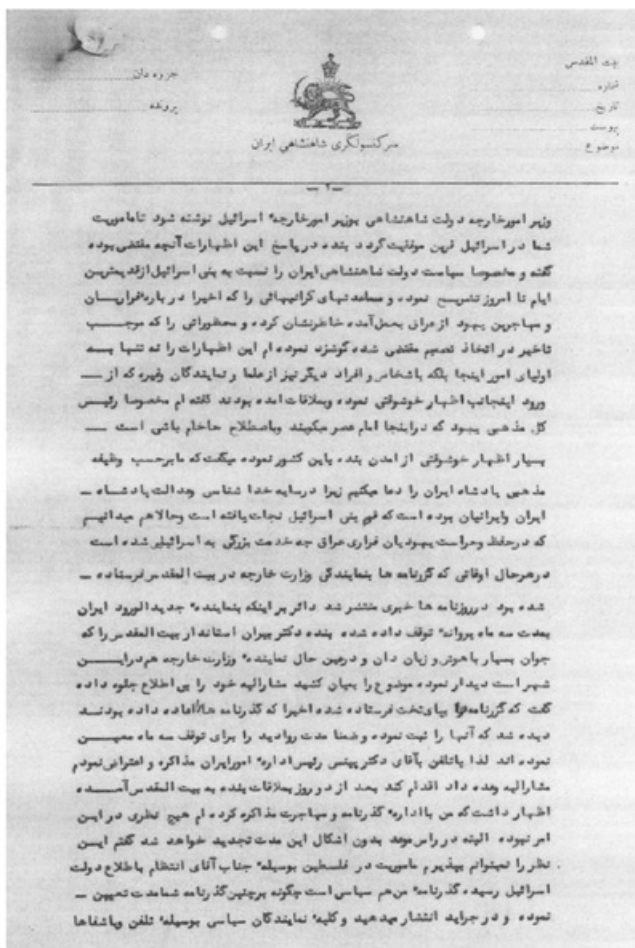 بیت المقدس
شماره
تاریخ
پیوست
موضوع
جزوه دان
پرونده
سرکنسولگری شاهنشاهی ایران
ـ۲ـ
وزیر امورخارجه دولت شاهنشاهی بوزیر امورخارجهٔ اسرائیل نوشته شود تاماموریت
شما در اسرائیل قرین موفقیت گردد بنده در پاسخ این اظهارات آنچه مقتضی بوده
گفته و مخصوصا سیاست دولت شاهنشاهی ایران را نسبت به بنی اسرائیل ازقدیمترین
ایام تا امروز تشریح نموده و مساعدتهای گرانبهائی را که اخیرا در باره فراریــان
و مهاجرین یهود از عراق بعمل آمده خاطرنشان کرده و محظوراتی را که موجــب
تاخیر در اتخاذ تصمیم مقتضی شده گوشزد نموده ام این اظهارات را نه تنها بــه
اولیای امور اینجا بلکه باشخاص و افراد دیگر نیز از علما و نمایندگان وغیره که از ــ
ورود اینجانب اظهار خوشوقتی نموده وبملاقات امده بودند گفته ام مخصوصا رئیس
کل مذهبی یهود که دراینجا امام عصر میگویند وباصطلاح حاخام باشی است ــ
بسیار اظهار خوشوقتی از امدن بنده باین کشور نموده میگفت که ما برحسب وظیفه
مذهبی پادشاه ایران را دعا میکنیم زیرا درسایه خدا شناسی وعدالت پادشاه ــ
ایران وایرانیان بوده است که قوم بنی اسرائیل نجات یافته است وحالاهم میدانیم
که درحفظ وحراست یهودیان فراری عراق چه خدمت بزرگی به اسرائیلی شده است
درهرحال اوقاتی که گزرنامه ها بنمایندگی وزارت خارجه در بیت المقدس فرستاده ــ
شده بود درروزنامه ها خبری منتشر شد دائر بر اینکه بنمایندهٔ جدیدالورود ایران
بمدت سه ماه پروانهٔ توقف داده شده بنده دکتر بیران استاندار بیت المقدس را که
جوان بسیار باهوش و زبان دان و درعین حال نمایندهٔ وزارت خارجه هم دراین
شهر است دیدار نموده موضوع را بیان کشید مشارالیه خود را بی اطلاع جلوه داده
گفت که گزرنامه بپای تخت فرستاده شده اخیرا که گذرنامه هارا اماده داده بودند
دیده شد که آنها را ثبت نموده و ضمنا مدت روادید را برای توقف سه ماه معیــن
نموده اند لذا باتلفن بآقای دکتر رئیس ادارهٔ امورایران مذاکره و اعتراض نمودم
مشارالیه وعده داد اقدام کند بعد از دو روز بملاقات بنده به بیت المقدس آمــده
اظهار داشت که من باادارهٔ گذرنامه و مهاجرت مذاکره کرده ام هیچ نظری در این
امر نبوده البته در راس موعد بدون اشکال این مدت تجدید خواهد شد گفتم ایــن
نظر را نمیتوانم بپذیرم ماموریت در فلسطین بوسیلهٔ جناب آقای انتظام باطلاع دولت
اسرائیل رسیده گذرنامهٔ من هم سیاسی است چگونه برچنین گذرنامه شما مدت تعیین ــ
نموده و در جراید انتشار میدهید وکلیهٔ نمایندگان سیاسی بوسیلهٔ تلفن وباشفاها